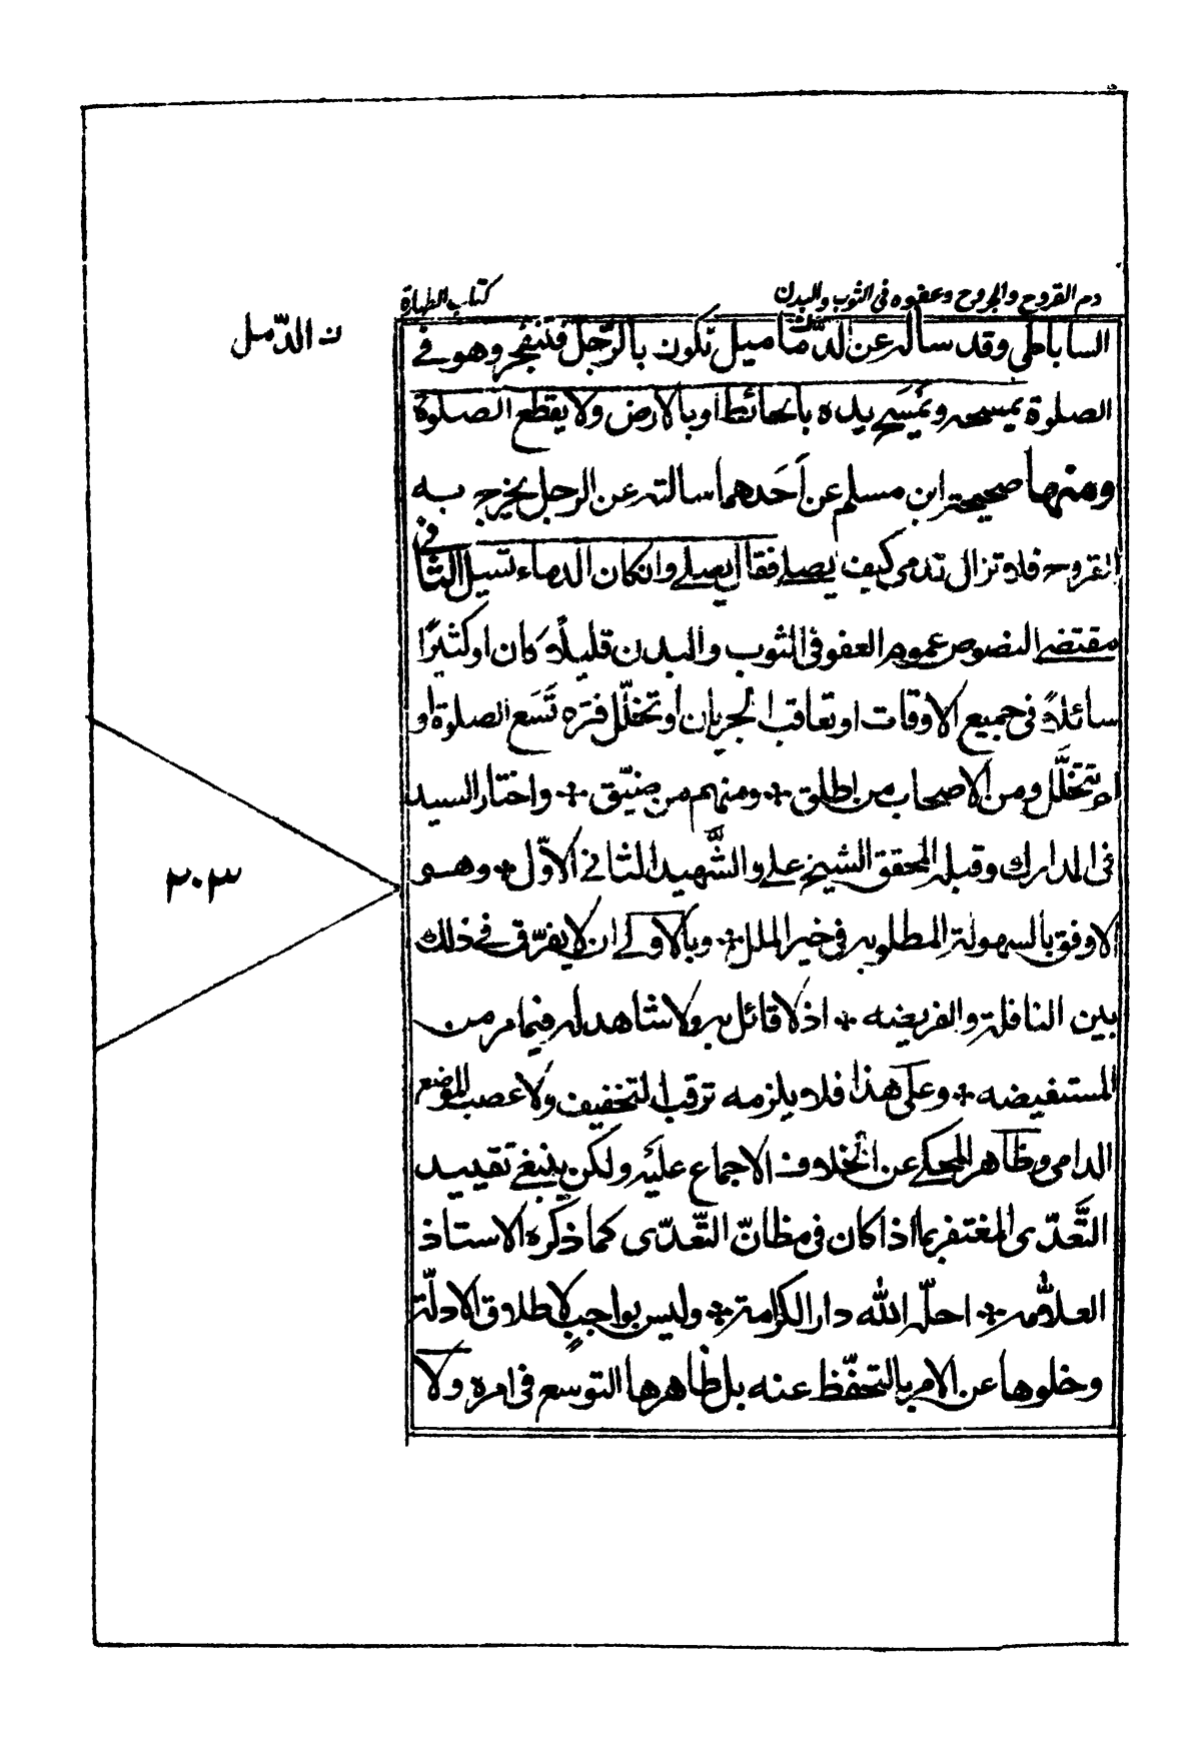 دم القروح والجروح وعفوه فى الثوب والبدن
كتاب الطهارة
ن الدّمل
الساباطى وقد ساله عن الدّماميل تكون بالرّجل فتنفجر وهو فى
الصلوة يمسحه ويمسَح يده بالحائط او بالارض ولا يقطع الصلوة
ومنها صحيحة ابن مسلم عن اَحَدهما سالته عن الرجل يخرج به
القروح فلا تزال تدمى كيف يصلى فقال يصلى وان كان الدماء تسيل الثانى
مقتضى النصوص عموم العفو فى الثوب والبدن قليلاً كان او كثيرًا
سائلاً فى جميع الاوقات او تعاقب الجريان او تخلّل فتره تَسَع الصلوة او
لم تتخلَّل ومن الاصحاب من اطلق ومنهم من ضيّق واختار السيد
فى المدارك وقبله المحقق الشيخ على والشّهيد الثانى الاوّل وهو
الاوفق بالسهولة المطلوبه فى خير الملل وبالاولى ان لا يفرّق فى ذلك
بين النافلة والفريضه اذ لا قائل به ولا شاهد له فيما مر من
المستفيضه وعلى هذا فلا يلزمه ترقب التخفيف ولا عصب الموضع
الدامى وظاهر المحكى عن الخلاف الاجماع عليه ولكن ينبغى تقييد
التَّعدّى المغتفر بما اذا كان فى مظانّ التّعدّى كما ذكره الاستاذ
العلاّمه احلّه الله دار الكرامة وليس بواجبٍ لاطلاق الادلّة
وخلوها عن الامر بالتحفّظ عنه بل ظاهرها التوسع فى امره ولا
٣٠٣